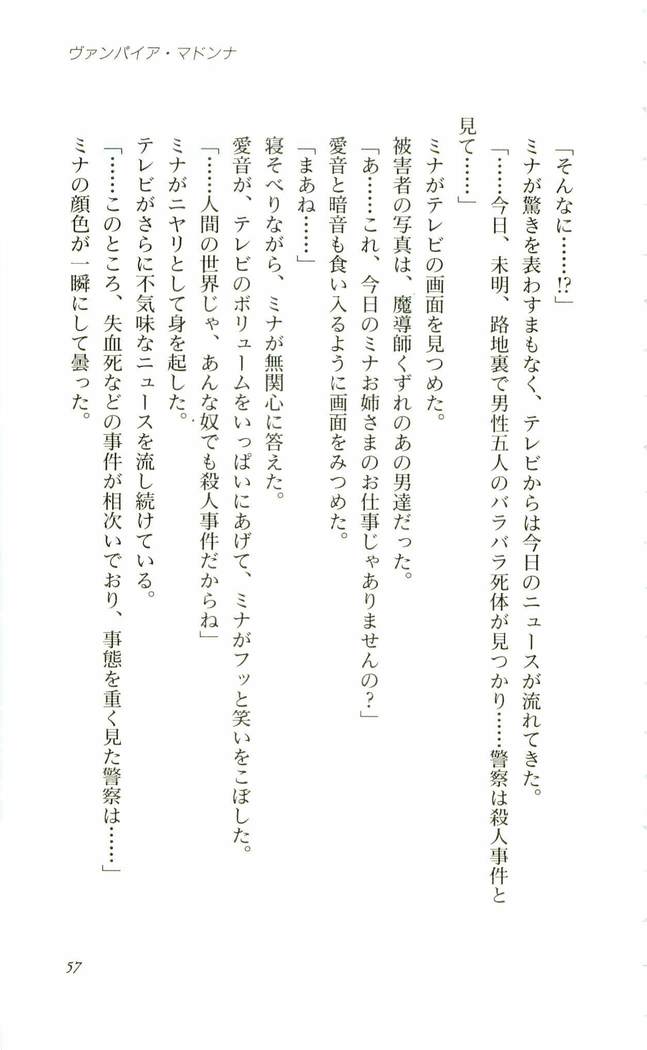 ヴァンパイア・マドンナ
「そんなに……!?」
ミナが驚きを表わすまもなく、テレビからは今日のニュースが流れてきた。
「……今日、未明、路地裏で男性五人のバラバラ死体が見つかり……警察は殺人事件と
見て……」
ミナがテレビの画面を見つめた。
被害者の写真は、魔導師くずれのあの男達だった。
「あ……これ、今日のミナお姉さまのお仕事じゃありませんの?」
愛音と暗音も食い入るように画面をみつめた。
「まあね……」
寝そべりながら、ミナが無関心に答えた。
愛音が、テレビのボリュームをいっぱいにあげて、ミナがフッと笑いをこぼした。
「……人間の世界じゃ、あんな奴でも殺人事件だからね」
ミナがニヤリとして身を起した。
テレビがさらに不気味なニュースを流し続けている。
「……このところ、失血死などの事件が相次いでおり、事態を重く見た警察は……」
ミナの顔色が一瞬にして曇った。
57